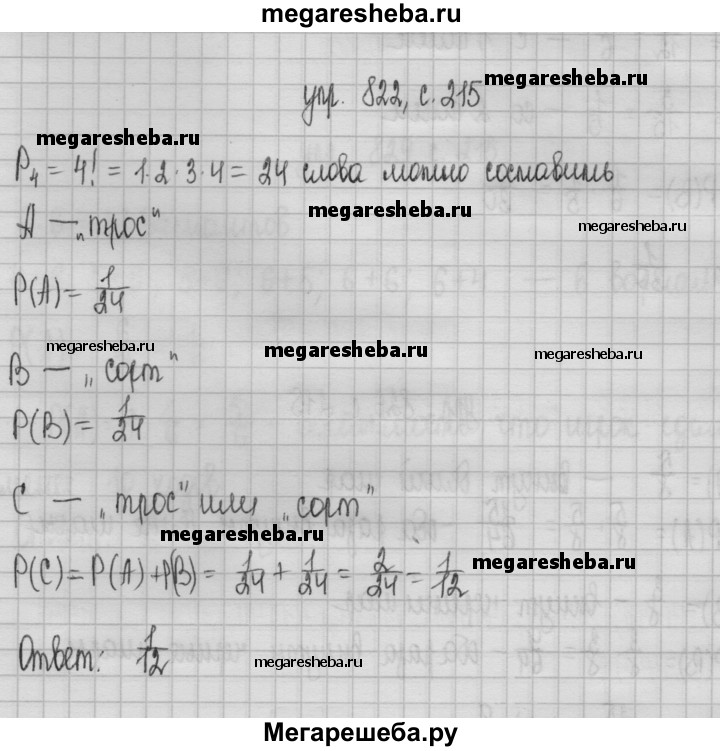 megaresheba.ru
упр. 822, с. 215 megaresheba.ru
megaresheba.ru
P₄ = 4! = 1·2·3·4 = 24 слова можно составить
A — „трос" megaresheba.ru megaresheba.ru
P(A) = 1/24
megaresheba.ru megaresheba.ru megaresheba.ru
B — „сорт"
P(B) = 1/24
C — „трос" или „сорт"
megaresheba.ru
P(C) = P(A) + P(B) = 1/24 + 1/24 = 2/24 = 1/12 megaresheba.ru
Ответ: 1/12 megaresheba.ru megaresheba.ru
Мегарешеба.ру